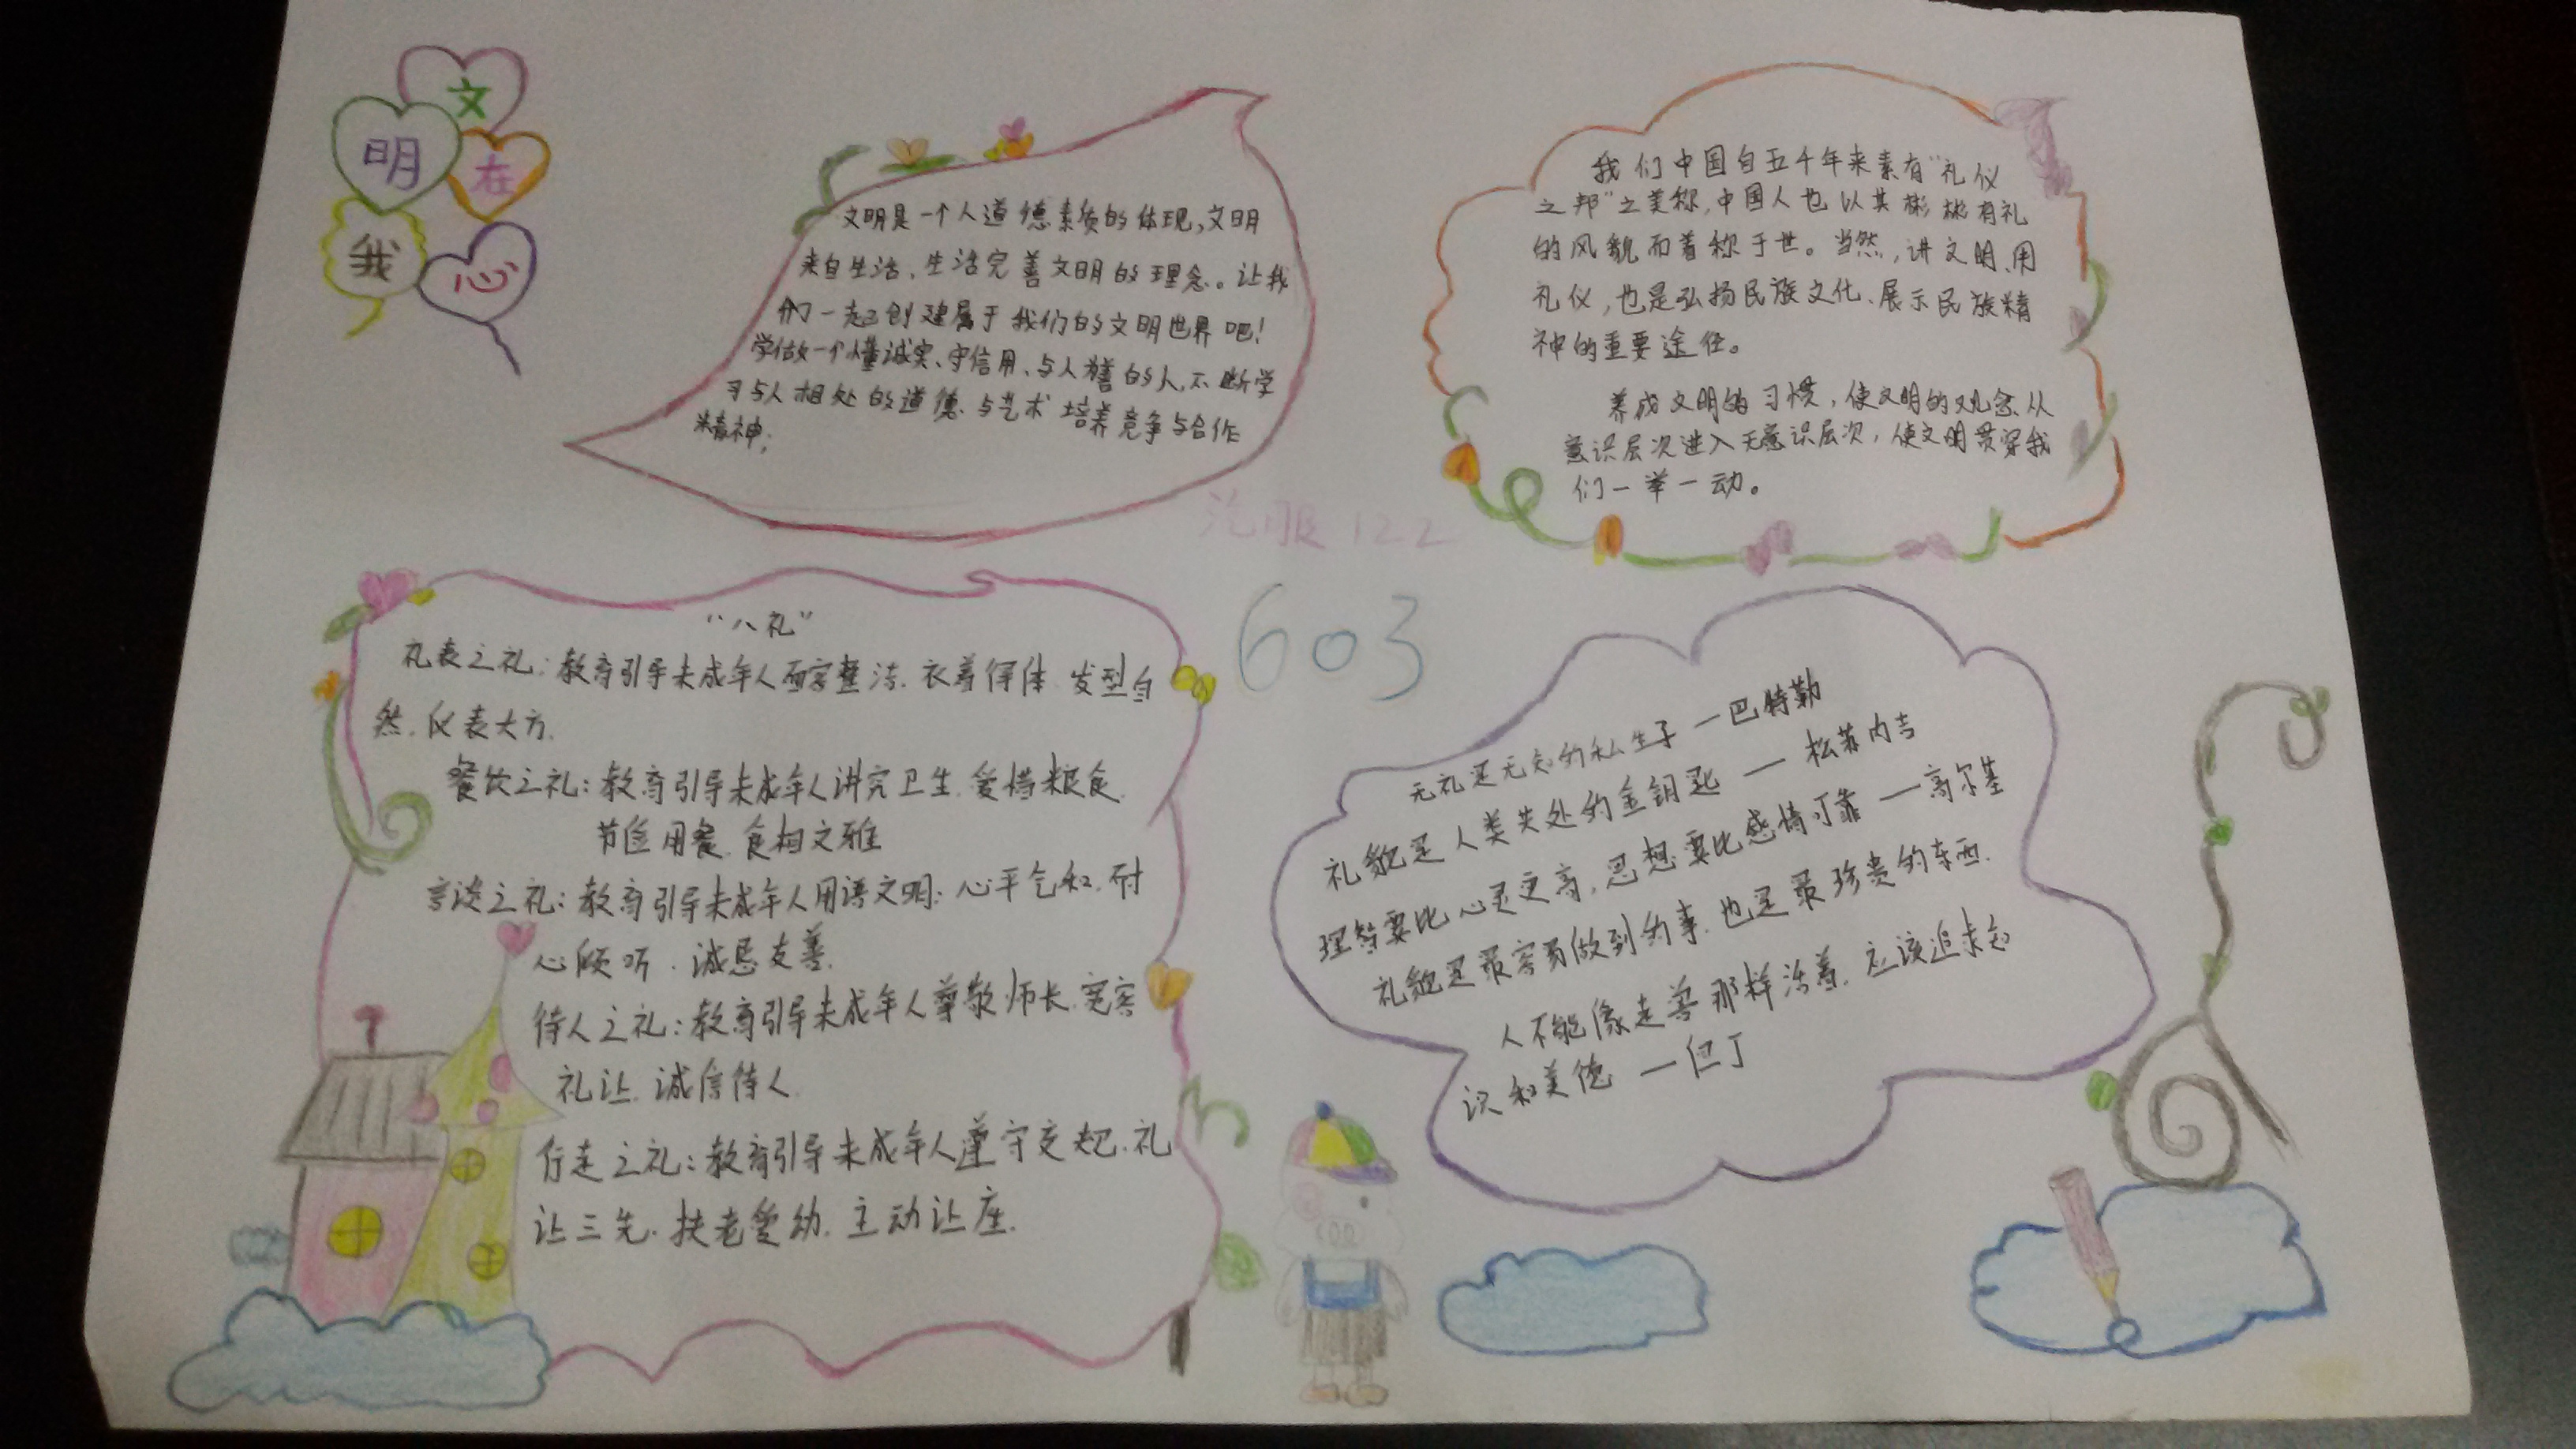 文
明
在
我
心
文明是一个人道德素质的体现,文明
来自生活、生活完善文明的理念。让我
们一起创建属于我们的文明世界吧!
学做一个懂诚实、守信用、与人为善的人,不断学
习与人相处的道德与艺术培养竞争与合作
精神;
我们中国自五千年来素有“礼仪
之邦”之美称,中国人也以其彬彬有礼
的风貌而着称于世。当然,讲文明、用
礼仪,也是弘扬民族文化、展示民族精
神的重要途径。
养成文明的习惯,使文明的观念从
意识层次进入无意识层次,使文明贯穿我
们一举一动。
122
603
“八礼”
礼表之礼:教育引导未成年人面容整洁、衣着得体、发型自
然、仪表大方.
餐饮之礼:教育引导未成年人讲究卫生、爱惜粮食、
节俭用餐、食相文雅
言谈之礼:教育引导未成年人用语文明:心平气和、耐
心倾听、诚恳友善.
待人之礼:教育引导未成年人尊敬师长、宽容
礼让、诚信待人.
行走之礼:教育引导未成年人遵守交规、礼
让三先、扶老爱幼、主动让座.
无礼是无知的私生子 一巴特勒
礼貌是人类共处的金钥匙 一 松苏内吉
理智要比心灵更高,思想要比感情可靠 一高尔基
礼貌是最容易做到的事、也是最珍贵的东西.
人不能像走兽那样活着、应该追求知
识和美德 一但丁